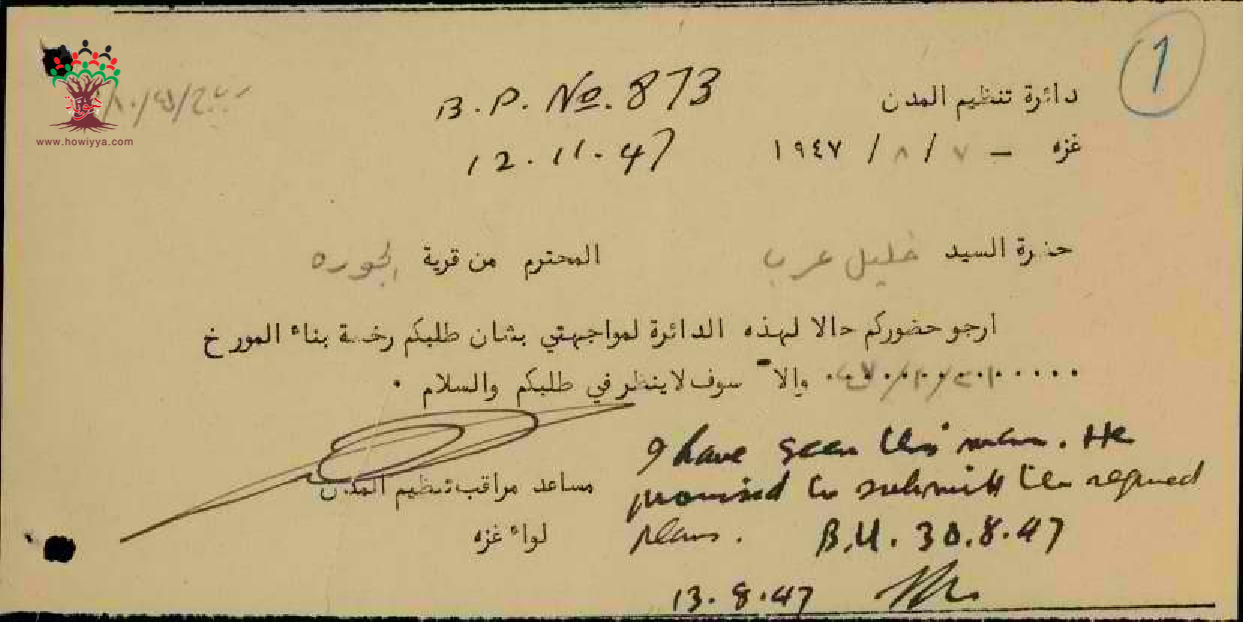 1
دائرة تنظيم المدن
B.P. No. 873
غزه – ٧ / ٨ / ١٩٤٧
12.11.47
www.howiyya.com
حضرة السيد خليل عرب المحترم من قرية الجوره
ارجو حضوركم حالا لهذه الدائرة لمواجهتي بشان طلبكم رخصة بناء المورخ
والا سوف لا ينظر في طلبكم والسلام .
I have seen this man. He
promised to submit the required
plans. B.U. 30.8.47
13.8.47
مساعد مراقب تنظيم المدن
لواء غزه